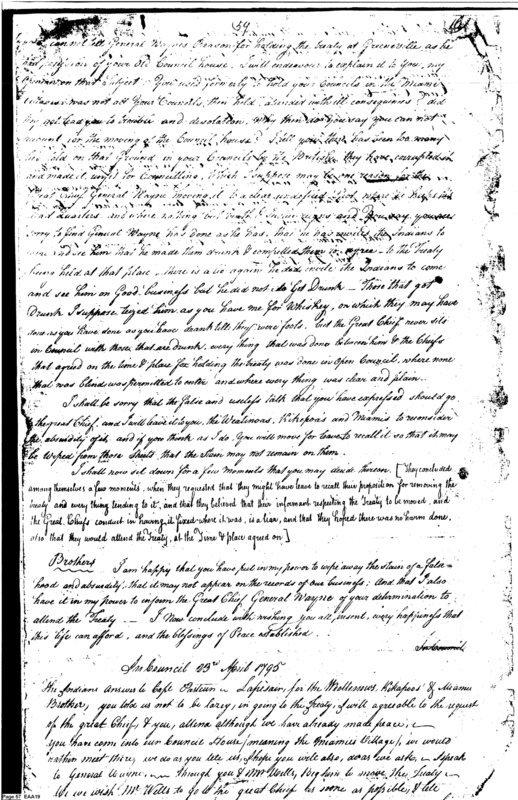 59
cannot tell General Waynes Reason for holding the Treaty at Greeneville, as he
of your Old Council house. I will endeavour to explain it to you, my
opinion on that Subject. You used formerly to hold your Councils in the Miamie
was not all Your Councils, then held attended with ill consequences? did
they not lead you to trouble and desolation. Why then do you say you can not
account for the moving of the Council house? I tell you there has been too many
lies told on that Ground in your Councils by the British they have corrupted it
and made it unfit for Councilling, Which I suppose may be one reason for the
Great Chief General Wayne moving it to a clear undefiled Spot where he keeps his
head quarters, and where nothing but truth and you say you are
sorry to find General Wayne has done as he has, that he has invited the Indians to
come and see him that he made them drunk & compelled them to agree to the Treaty
being held at that place. there is a lie again he did invite the Indians to come
and see him on Good business but he did not to Get Drunk — Those that got
Drunk I suppose teized him as you have me for Whiskey, on which they may have
done as you have done as you have drank till they were fools. but the Great Chief never sits
in Council with those that are Drunk, every thing that was done between him & the Chiefs
that agreed on the time & place for holding the treaty was done in Open Council, where none
that was blind was permitted to enter and where every thing was clear and plain.
I shall be sorry that the false and useless talk that you have expressed should go
to the great Chief, and I will leave it to you, the Weatinoas, Kikapoos and Miamis to reconsider
the absurdity of it, and if you think as I do, you will move for leave to recall it so that it may
be wiped from those Sheets that the Stain may not remain on them.
I shall now set down for a few moments that you may decide thereon. [They concluded
among themselves a few moments, when they requested that they might have leave to recall their proposition for removing the
treaty and every thing tending to it, and that they believed that their informant respecting the Treaty to be moved, and
the Great Chiefs conduct in having it fixed where it was, is a liar, and that they hoped there was no harm done,
also that they would attend the Treaty, at the Time & place agreed on.]
Brothers I am happy that you have put in my power to wipe away the stain of a false-
hood and absurdity, that it may not appear on the records of our business; And that I also
have it in my power to inform the Great Chief General Wayne of your determination to
attend the Treaty — I Now conclude with wishing you all, present, every happiness that
this life can afford, and the blessings of Peace established.
In Council
In Council 23rd April 1795
The Indians answer to Capt Pasteur & Lapesair, for the Weattenows, Kikapoos & Miamis
Brother, you told us not to be lazey, in going to the Treaty, I will agreeable to the request
of the great Chief, & you, attend although we have already made peace, —
You have come into our Council House (meaning the Miamies Village), we would
rather meet there, we do as you tell us, I hope you will also, do as we ask, — Speak
to General Wayne, — through you & Mr Wells, Beg him to move the Treaty —
We wish Mr Wells to go to the great Chief as soon as possible, & tell
Page 57 EAA19